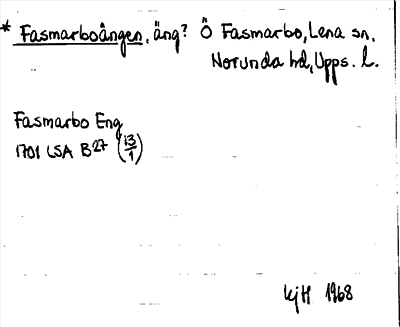 * Fasmarboängen, äng? Ö Fasmarbo, Lena sn,
Norunda hd, Upps. l.
Fasmarbo Eng
1701 LSA B27 (13/1)
kjH 1968